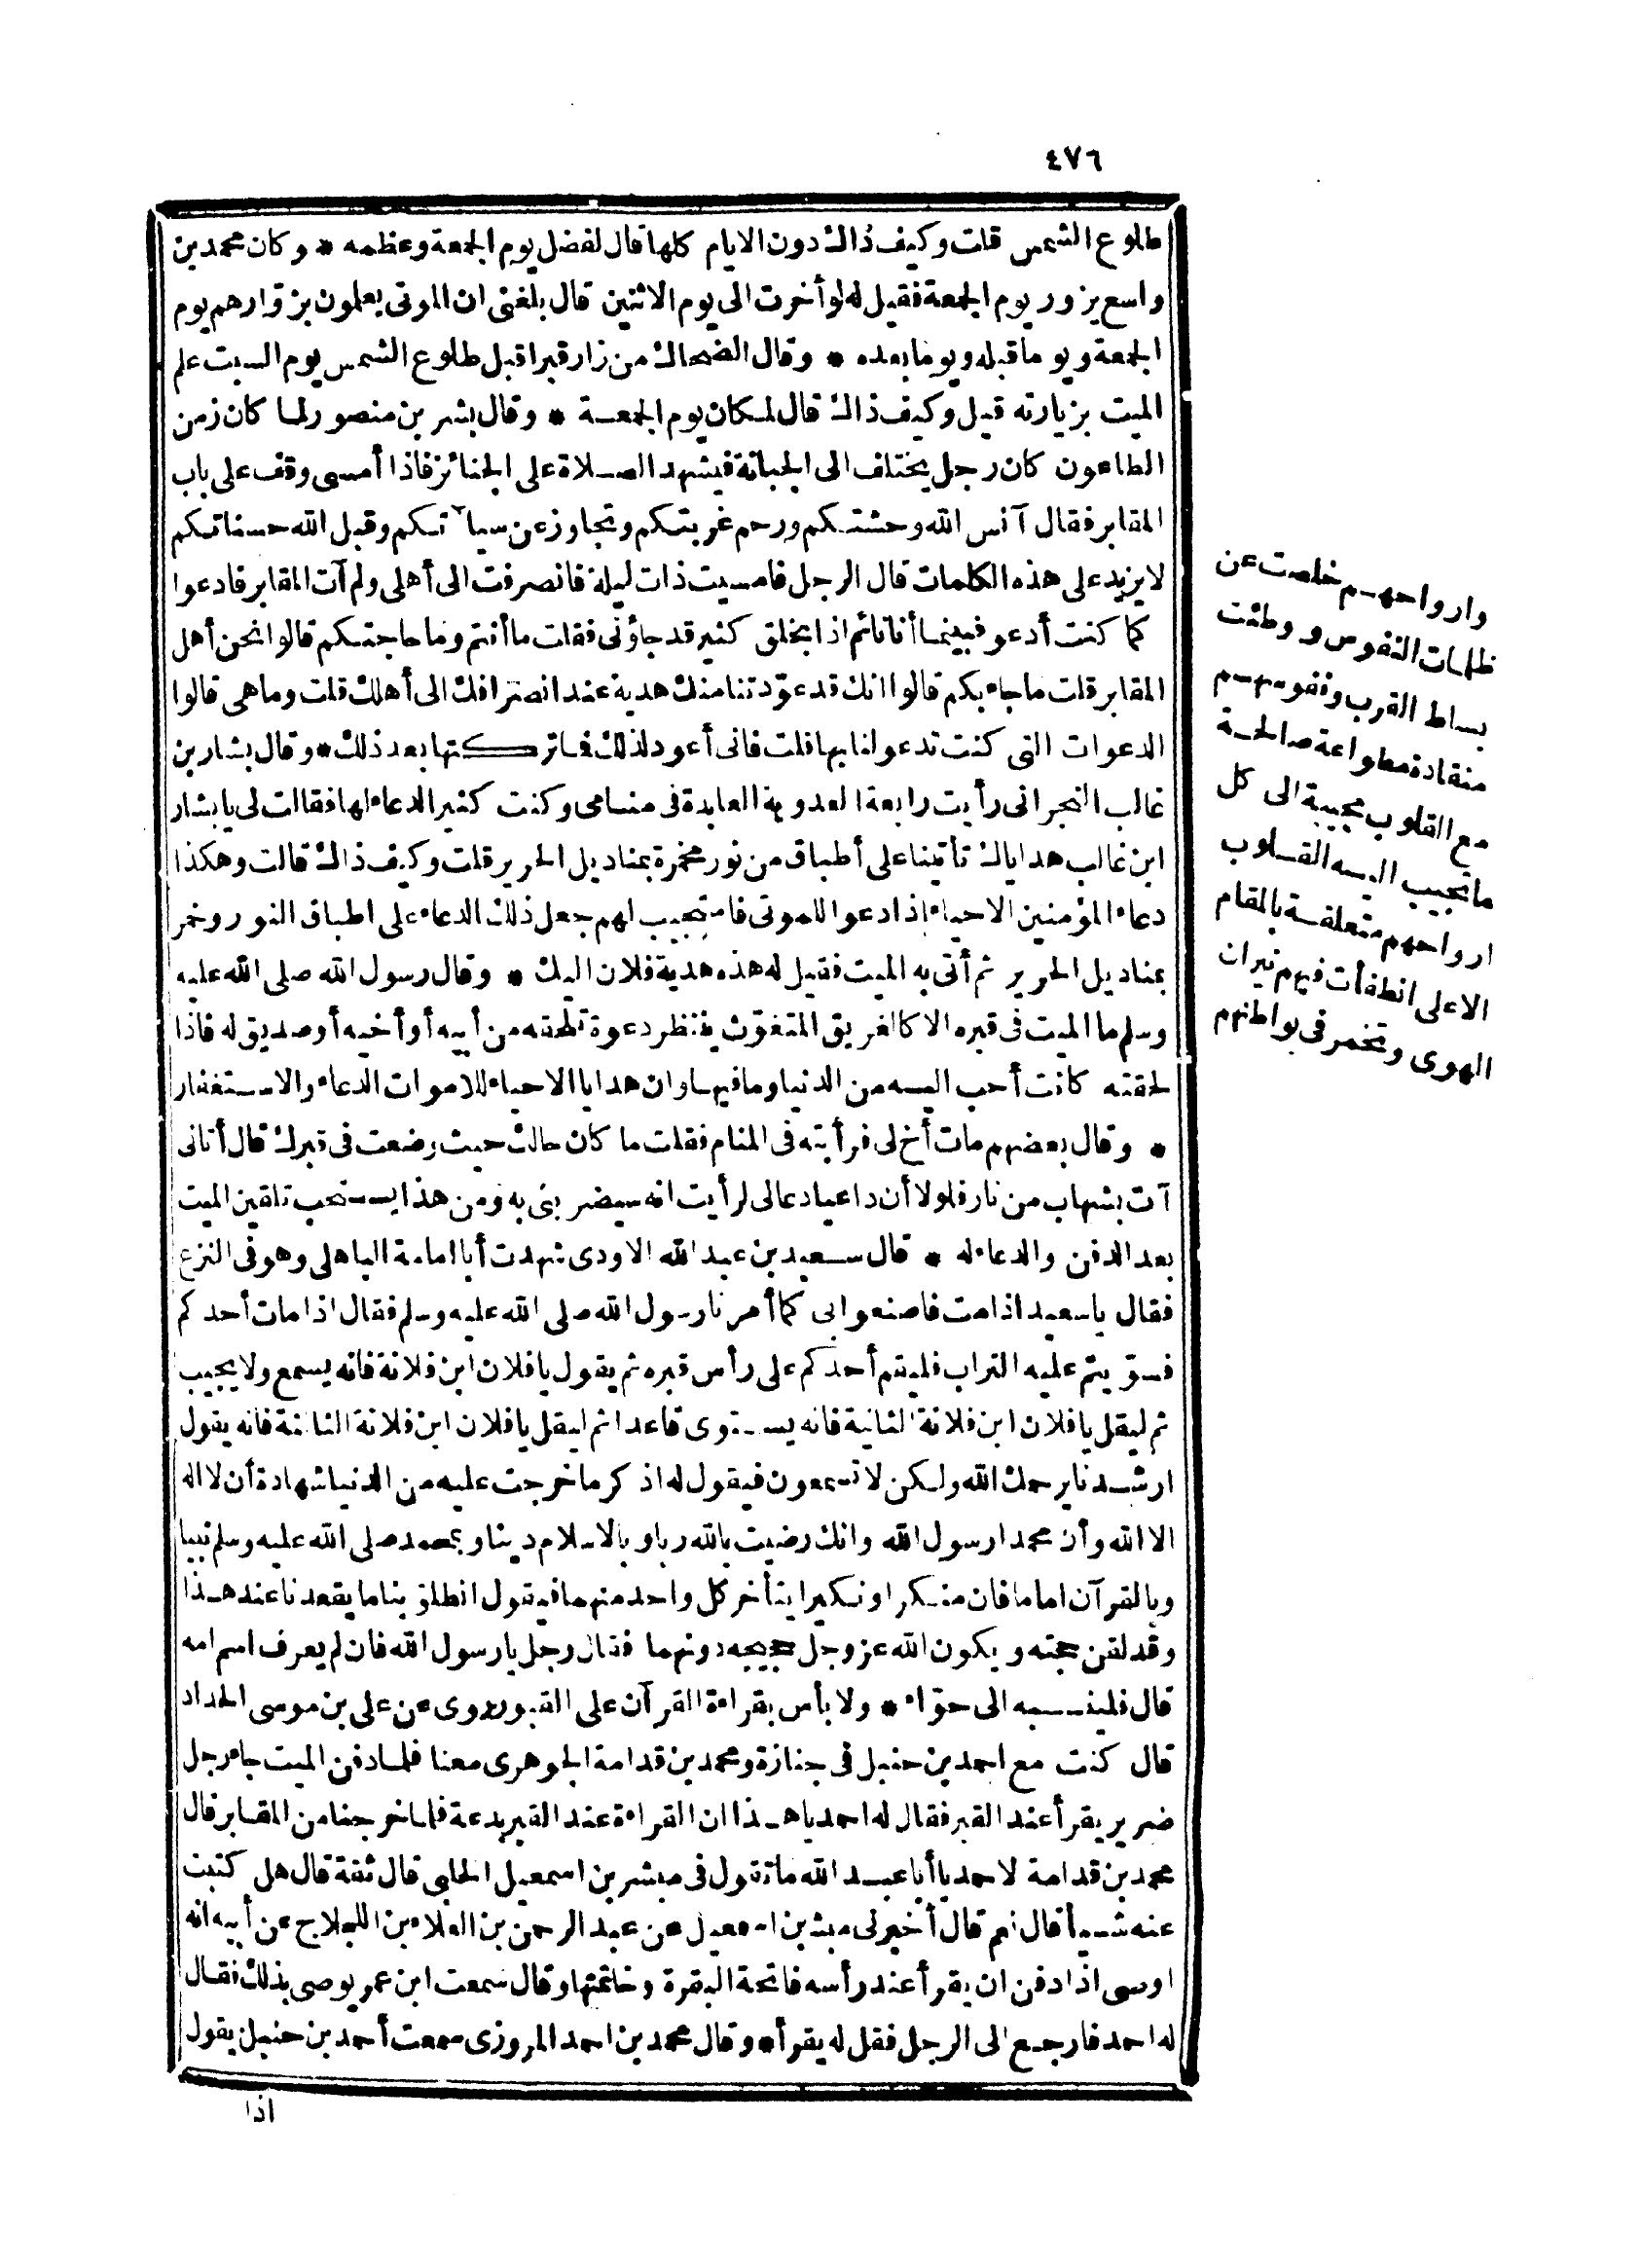 ٤٧٦
طلوع الشمس قلت وكيف ذاك دون الايام كلها قال لفضل يوم الجمعة وعظمه * وكان محمد بن
واسع يزور يوم الجمعة فقيل له لو أخرت الى يوم الاثنين قال بلغنى ان الموتى يعلمون بزوّارهم يوم
الجمعة ويوما قبله ويوما بعده * وقال الضحاك من زار قبرا قبل طلوع الشمس يوم السبت علم
الميت بزيارته قيل وكيف ذاك قال لمكان يوم الجمعة * وقال بشر بن منصور لما كان زمن
الطاعون كان رجل يختلف الى الجبانة فيشهد الصلاة على الجنائز فاذا أمسى وقف على باب
المقابر فقال آنس الله وحشتكم ورحم غربتكم وتجاوز عن سيآتكم وقبل الله حسناتكم
لا يزيد على هذه الكلمات قال الرجل فامسيت ذات ليلة فانصرفت الى أهلى ولم آت المقابر فادعوا
كما كنت أدعو فبينما أنا نائم اذا بخلق كثير قد جاؤنى فقلت ما أنتم وما حاجتكم قالوا نحن أهل
المقابر قلت ما جاء بكم قالوا انك قد عوّدتنا منك هدية عند انصرافك الى أهلك قلت وما هى قالوا
الدعوات التى كنت تدعو لنا بها قلت فانى أعود لذلك فما تركتها بعد ذلك * وقال بشار بن
غالب النجرانى رأيت رابعة العدوية العابدة فى منامى وكنت كثير الدعاء لها فقالت لى يا بشار
ابن غالب هداياك تأتينا على أطباق من نور مخمرة بمناديل الحرير قلت وكيف ذاك قالت وهكذا
دعاء المؤمنين الاحياء اذا دعوا للموتى فاستجيب لهم جعل ذلك الدعاء على اطباق النور وخمر
بمناديل الحرير ثم أتى به الميت فقيل له هذه هدية فلان اليك * وقال رسول الله صلى الله عليه
وسلم ما الميت فى قبره الا كالغريق المتغوّث ينتظر دعوة تلحقه من أبيه أو أخيه أو صديق له فاذا
لحقته كانت أحب اليه من الدنيا وما فيها وان هدايا الاحياء للاموات الدعاء والاستغفار
* وقال بعضهم مات أخ لى فرأيته فى المنام فقلت ما كان حالك حيث وضعت فى قبرك قال أتانى
آت بشهاب من نار فلولا أن داعيا دعا لى لرأيت انه سيضربنى به ومن هذا يستحب تلقين الميت
بعد الدفن والدعاء له * قال سعيد بن عبد الله الاودى شهدت أبا امامة الباهلى وهو فى النزع
فقال يا سعيد اذا مت فاصنعوا بى كما أمرنا رسول الله صلى الله عليه وسلم فقال اذا مات أحدكم
فسوّيتم عليه التراب فليقم أحدكم على رأس قبره ثم يقول يا فلان ابن فلانة فانه يسمع ولا يجيب
ثم ليقل يا فلان ابن فلانة الثانية فانه يستوى قاعدا ثم ليقل يا فلان ابن فلانة الثالثة فانه يقول
ارشدنا يرحمك الله ولكن لا تسمعون فيقول له اذكر ما خرجت عليه من الدنيا شهادة أن لا اله
الا الله وأن محمدا رسول الله وانك رضيت بالله ربا وبالاسلام دينا وبمحمد صلى الله عليه وسلم نبيا
وبالقرآن اماما فان منكرا ونكيرا يتأخر كل واحد منهما فيقول انطلق بنا ما يقعدنا عند هذا
وقد لقن حجته ويكون الله عز وجل حجيجه دونهما فقال رجل يا رسول الله فان لم يعرف اسم امه
قال فلينسبه الى حوّاء * ولا بأس بقراءة القرآن على القبور روى عن على بن موسى الحداد
قال كنت مع احمد بن حنبل فى جنازة ومحمد بن قدامة الجوهرى معنا فلما دفن الميت جاء رجل
ضرير يقرأ عند القبر فقال له احمد يا هذا ان القراءة عند القبر بدعة فلما خرجنا من المقابر قال
محمد بن قدامة لاحمد يا أبا عبد الله ما تقول فى مبشر بن اسمعيل الحلبى قال ثقة قال هل كتبت
عنه شيأ قال نعم قال أخبرنى مبشر بن اسمعيل عن عبد الرحمن بن العلاء بن اللجلاج عن أبيه انه
اوصى اذا دفن ان يقرأ عند رأسه فاتحة البقرة وخاتمتها وقال سمعت ابن عمر يوصى بذلك فقال
له احمد فارجع الى الرجل فقل له يقرأ * وقال محمد بن احمد المروزى سمعت أحمد بن حنبل يقول
اذا
وارواحهم خلصت عن
ظلمات النفوس ووطئت
بساط القرب ونفوسهم
منقادة مطواعة صالحة
مع القلوب مجيبة الى كل
ما تجيب اليه القلوب
ارواحهم متعلقة بالمقام
الاعلى انطفأت فيهم نيران
الهوى وتخمر فى بواطنهم